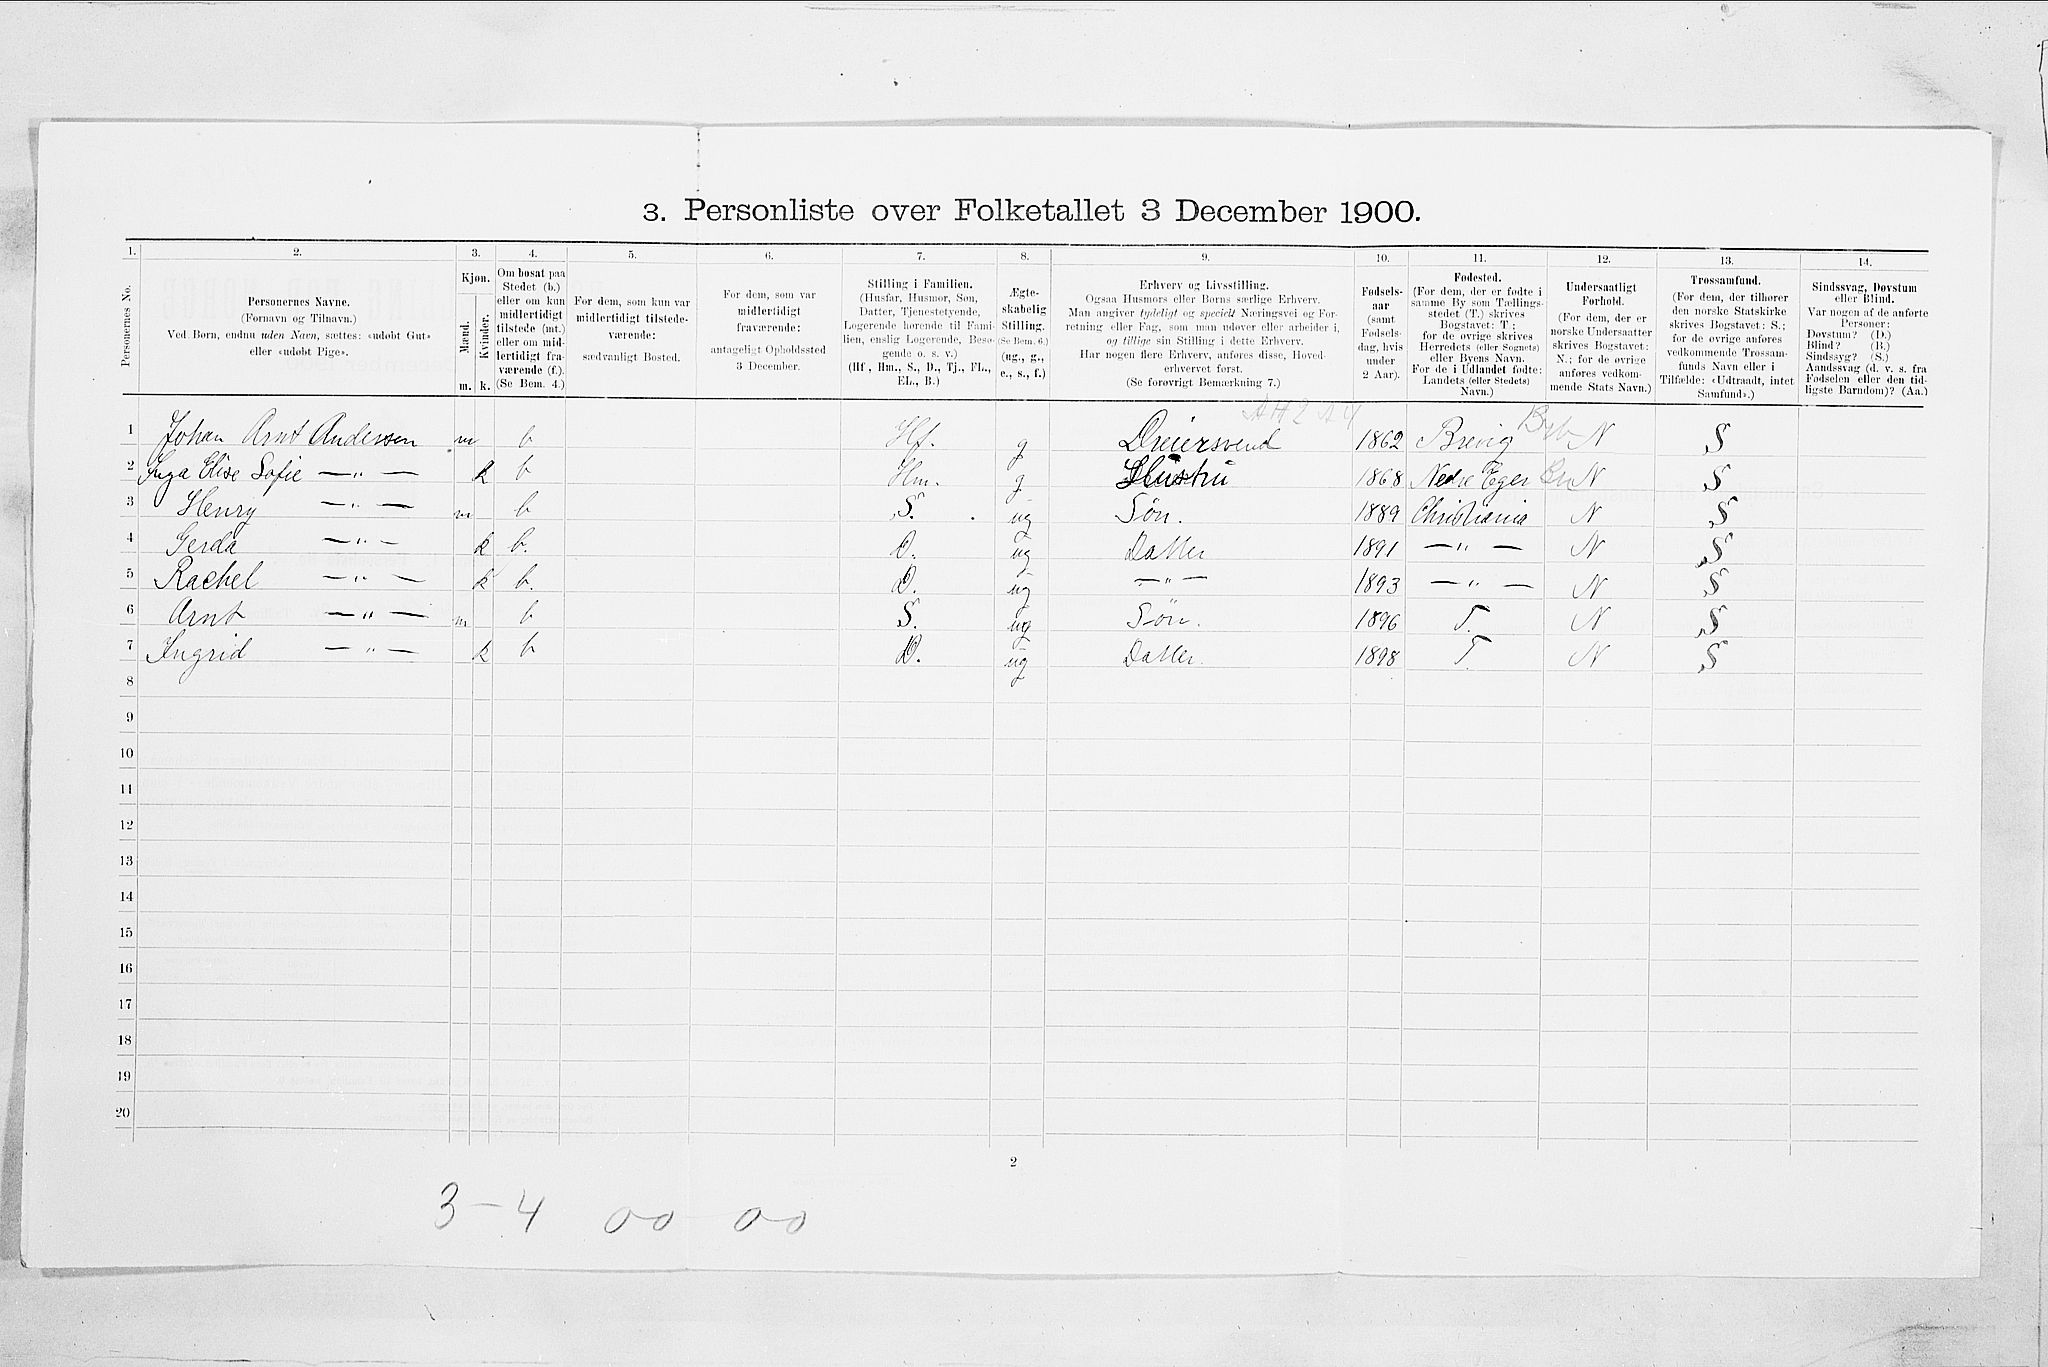 3. Personliste over Folketallet 3 December 1900.
1. 2. 3. 4. 5. 6. 7. 8. 9. 10. 11. 12. 13. 14.
Personernes No.
Personernes Navne.
(Fornavn og Tilnavn.)
Ved Børn, endnu uden Navn, sættes: «udøbt Gut»
eller «udøbt Pige».
Kjøn.
Mænd.
Kvinder.
m. k.
Om bosat paa
Stedet (b.)
eller om kun
midlertidigt
tilstede (mt.)
eller om mid-
lertidigt fra-
værende (f.).
(Se Bem. 4.)
For dem, som kun var
midlertidigt tilstede-
værende:
sædvanligt Bosted.
For dem, som var
midlertidigt
fraværende:
antageligt Opholdssted
3 December.
Stilling i Familien.
(Husfar, Husmor, Søn,
Datter, Tjenestetyende,
Logerende hørende til Fami-
lien, enslig Logerende, Besø-
gende o. s. v.)
(Hf., Hm., S., D., Tj., FL.,
EL., B.)
Ægte-
skabelig
Stilling.
(Se Bem. 6.)
(ug., g.,
e., s., f.)
Erhverv og Livsstilling.
Ogsaa Husmors eller Børns særlige Erhverv.
Man angiver tydeligt og specielt Næringsvei og For-
retning eller Fag, som man udøver eller arbeider i,
og tillige sin Stilling i dette Erhverv.
Har nogen flere Erhverv, anføres disse, Hoved-
erhvervet først.
(Se forøvrigt Bemærkning 7.)
Fødsels-
aar
(samt
Fødsels-
dag, hvis
under
2 Aar).
Fødested.
(For dem, der er fødte i
samme By som Tællings-
stedet (T.) skrives
Bogstavet: T;
for de øvrige skrives
Herredets (eller Sognets)
eller Byens Navn.
For de i Udlandet fødte:
Landets (eller Stedets)
Navn.)
Undersaatligt
Forhold.
(For dem, der er
norske Undersaatter
skrives Bogstavet:
N.; for de øvrige
anføres vedkom-
mende Stats Navn.)
Trossamfund.
(For dem, der tilhører
den norske Statskirke
skrives Bogstavet: S.;
for de øvrige anføres
vedkommende Trossam-
funds Navn eller i
Tilfælde: «Udtraadt, intet
Samfund».)
Sindssvag, Døvstum
eller Blind.
Var nogen af de anførte
Personer:
Døvstum? (D.)
Blind? (B.)
Sindssyg? (S.)
Aandssvag (d. v. s. fra
Fødselen eller den tid-
ligste Barndom)? (Aa.)
1 Johan Arnt Andersen m b Hf. g Dreiersvend 1862 Brevig N S
2 Inga Elise Sofie —„— k b Hm. g Hustru 1868 Nedre Eger N S
3 Henry —„— m b S. ug Søn. 1889 Christiania N S
4 Gerda —„— k b. D. ug Datter 1891 —„— N S
5 Rachel —„— k b. D. ug —„— 1893 —„— N S
6 Arnt —„— m b S. ug Søn. 1896 T. N S
7 Ingrid —„— k b D. ug Datter. 1898 T N S
8
9
10
11
12
13
14
15
16
17
18
19
20
2
3-4 00 00